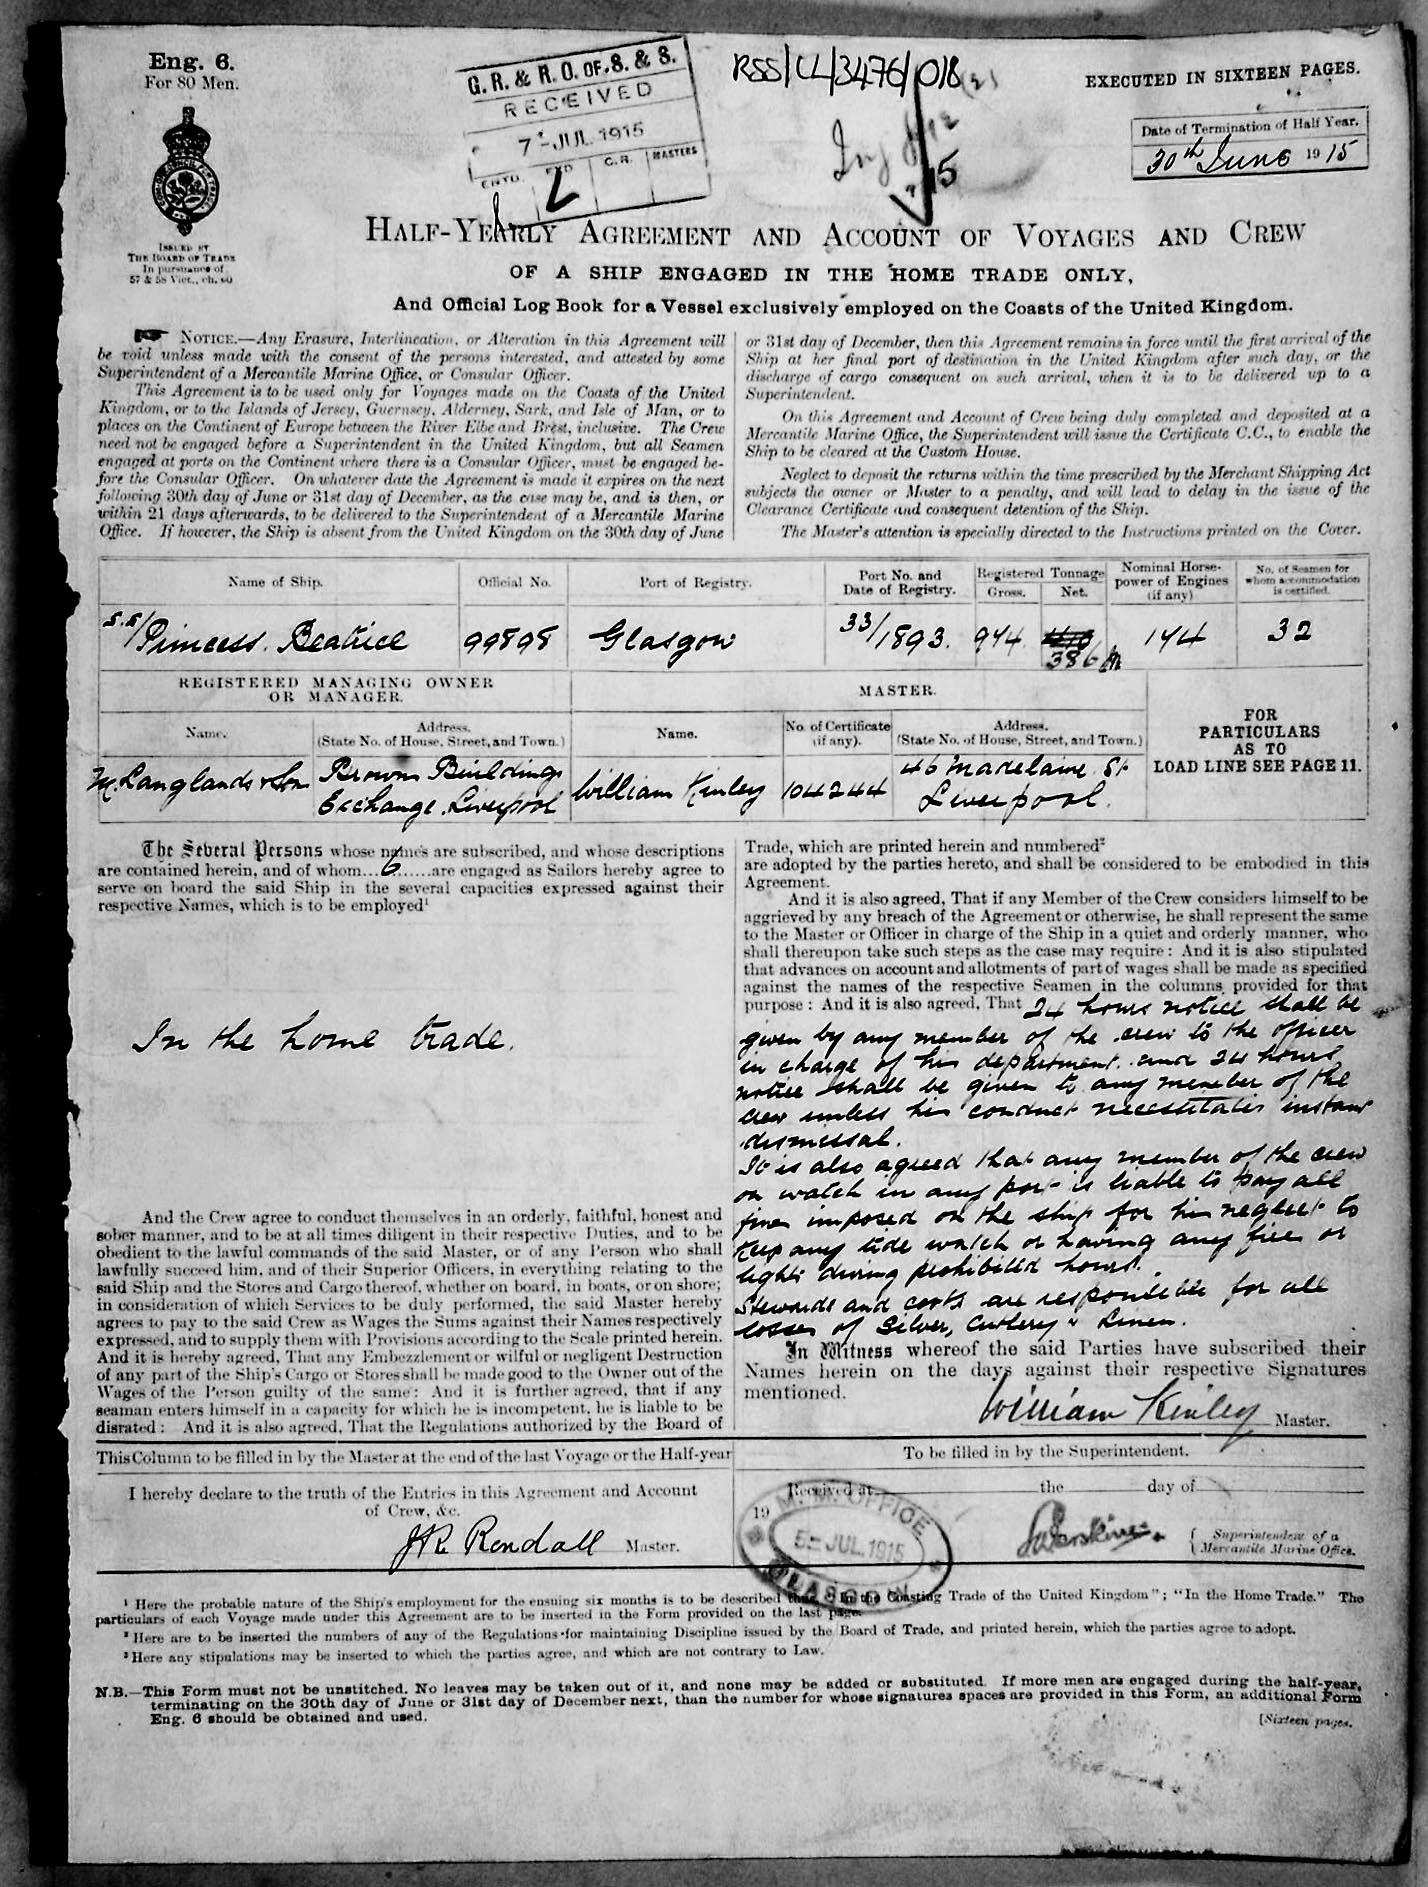 Eng. 6.
For 80 Men.
ISSUED BY
THE BOARD OF TRADE
In pursuance of
57 & 58 Vict., ch. 60
G. R. & R. O. OF S. & S.
RECEIVED
7 - JUL 1915
ENTD. EXD C.R. MASTERS
RSS/CL/3476/018 (2)
15
EXECUTED IN SIXTEEN PAGES.
Date of Termination of Half Year.
30th June 1915
HALF-YEARLY AGREEMENT AND ACCOUNT OF VOYAGES AND CREW
OF A SHIP ENGAGED IN THE HOME TRADE ONLY,
And Official Log Book for a Vessel exclusively employed on the Coasts of the United Kingdom.
NOTICE.—Any Erasure, Interlineation, or Alteration in this Agreement will
be void unless made with the consent of the persons interested, and attested by some
Superintendent of a Mercantile Marine Office, or Consular Officer.
This Agreement is to be used only for Voyages made on the Coasts of the United
Kingdom, or to the Islands of Jersey, Guernsey, Alderney, Sark, and Isle of Man, or to
places on the Continent of Europe between the River Elbe and Brest, inclusive. The Crew
need not be engaged before a Superintendent in the United Kingdom, but all Seamen
engaged at ports on the Continent where there is a Consular Officer, must be engaged be-
fore the Consular Officer. On whatever date the Agreement is made it expires on the next
following 30th day of June or 31st day of December, as the case may be, and is then, or
within 21 days afterwards, to be delivered to the Superintendent of a Mercantile Marine
Office. If however, the Ship is absent from the United Kingdom on the 30th day of June
or 31st day of December, then this Agreement remains in force until the first arrival of the
Ship at her final port of destination in the United Kingdom after such day, or the
discharge of cargo consequent on such arrival, when it is to be delivered up to a
Superintendent.
On this Agreement and Account of Crew being duly completed and deposited at a
Mercantile Marine Office, the Superintendent will issue the Certificate C.C., to enable the
Ship to be cleared at the Custom House.
Neglect to deposit the returns within the time prescribed by the Merchant Shipping Act
subjects the owner or Master to a penalty, and will lead to delay in the issue of the
Clearance Certificate and consequent detention of the Ship.
The Master's attention is specially directed to the Instructions printed on the Cover.
Name of Ship. Official No. Port of Registry. Port No. and Date of Registry. Registered Tonnage Gross. Net. Nominal Horse-power of Engines (if any) No. of Seamen for whom accommodation is certified.
s.s/Princess Beatrice 99898 Glasgow 33/1893. 944 410 386 144 32
REGISTERED MANAGING OWNER
OR MANAGER.
MASTER.
Name. Address. (State No. of House, Street, and Town.) Name. No. of Certificate (if any). Address. (State No. of House, Street, and Town.)
M. Langlands & Son Browns Buildings Exchange. Liverpool William Kinley 104244 46 Madelaine St Liverpool.
FOR
PARTICULARS
AS TO
LOAD LINE SEE PAGE 11.
The Several Persons whose names are subscribed, and whose descriptions
are contained herein, and of whom...6......are engaged as Sailors hereby agree to
serve on board the said Ship in the several capacities expressed against their
respective Names, which is to be employed¹
In the home trade.
And the Crew agree to conduct themselves in an orderly, faithful, honest and
sober manner, and to be at all times diligent in their respective Duties, and to be
obedient to the lawful commands of the said Master, or of any Person who shall
lawfully succeed him, and of their Superior Officers, in everything relating to the
said Ship and the Stores and Cargo thereof, whether on board, in boats, or on shore;
in consideration of which Services to be duly performed, the said Master hereby
agrees to pay to the said Crew as Wages the Sums against their Names respectively
expressed, and to supply them with Provisions according to the Scale printed herein.
And it is hereby agreed, That any Embezzlement or wilful or negligent Destruction
of any part of the Ship's Cargo or Stores shall be made good to the Owner out of the
Wages of the Person guilty of the same: And it is further agreed, that if any
seaman enters himself in a capacity for which he is incompetent, he is liable to be
disrated: And it is also agreed, That the Regulations authorized by the Board of
Trade, which are printed herein and numbered²
are adopted by the parties hereto, and shall be considered to be embodied in this
Agreement.
And it is also agreed, That if any Member of the Crew considers himself to be
aggrieved by any breach of the Agreement or otherwise, he shall represent the same
to the Master or Officer in charge of the Ship in a quiet and orderly manner, who
shall thereupon take such steps as the case may require: And it is also stipulated
that advances on account and allotments of part of wages shall be made as specified
against the names of the respective Seamen in the columns provided for that
purpose: And it is also agreed, That 24 hours notice shall be
given by any member of the crew to the officer
in charge of his department and 24 hours
notice shall be given to any member of the
crew unless his conduct necessitates instant
dismissal.
It is also agreed that any member of the crew
on watch in any port is liable to pay all
fines imposed on the ship for his neglect to
keep any tide watch or having any fires or
lights during prohibited hours.
Stewards and cooks are responsible for all
losses of Silver, Cutlery & Linen.
In Witness whereof the said Parties have subscribed their
Names herein on the days against their respective Signatures
mentioned.
William Kinley Master.
This Column to be filled in by the Master at the end of the last Voyage or the Half-year
I hereby declare to the truth of the Entries in this Agreement and Account
of Crew, &c.
JR Rendall Master.
To be filled in by the Superintendent.
Received at the day of
19
M. M. OFFICE
5 - JUL. 1915
GLASGOW
Superintendent of a
Mercantile Marine Office.
¹ Here the probable nature of the Ship's employment for the ensuing six months is to be described thus, "In the Coasting Trade of the United Kingdom"; "In the Home Trade." The
particulars of each Voyage made under this Agreement are to be inserted in the Form provided on the last page.
² Here are to be inserted the numbers of any of the Regulations for maintaining Discipline issued by the Board of Trade, and printed herein, which the parties agree to adopt.
³ Here any stipulations may be inserted to which the parties agree, and which are not contrary to Law.
N.B.—This Form must not be unstitched. No leaves may be taken out of it, and none may be added or substituted. If more men are engaged during the half-year,
terminating on the 30th day of June or 31st day of December next, than the number for whose signatures spaces are provided in this Form, an additional Form
Eng. 6 should be obtained and used.
[Sixteen pages.